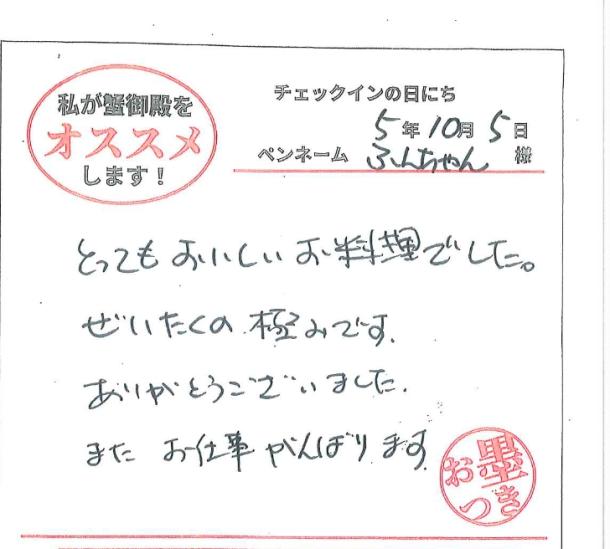 私が蟹御殿を
オススメ
します！
チェックインの日にち
5年10月5日
ペンネーム ふんちゃん 様
とってもおいしいお料理でした。
ぜいたくの極みです.
ありがとうございました.
また お仕事がんばります.
お墨つき